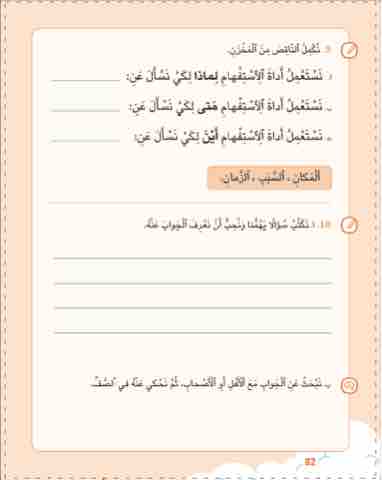 9. نُكْمِلُ ٱلنّاقِصَ مِنَ ٱلْمَخْزَنِ.
نَسْتَعْمِلُ أَداةَ ٱلِٱسْتِفْهامِ لِماذا لِكَيْ نَسْأَلَ عَنْ:
نَسْتَعْمِلُ أَداةَ ٱلِٱسْتِفْهامِ مَتى لِكَيْ نَسْأَلَ عَنْ:
نَسْتَعْمِلُ أَداةَ ٱلِٱسْتِفْهامِ أَيْنَ لِكَيْ نَسْأَلَ عَنْ:
ٱلْمَكانِ ، ٱلسَّبَبِ ، ٱلزَّمانِ.
10. أ. نَكْتُبُ سُؤالًا يَهُمُّنا وَنُحِبُّ أَنْ نَعْرِفَ ٱلْجَوابَ عَنْهُ.
ب. نَبْحَثُ عَنِ ٱلْجَوابِ مَعَ ٱلْأَهْلِ أَوِ ٱلْأَصْحابِ، ثُمَّ نَحْكي عَنْهُ في ٱلصَّفِّ.
82